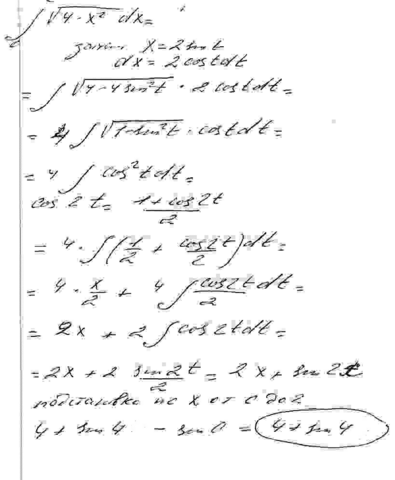 ∫√(4 - x²) dx =
замен x = 2 sin t
dx = 2 cos t dt
= ∫ √(4 - 4 sin² t) · 2 cos t dt =
= 4 ∫ √(1 - sin² t) · cos t dt =
= 4 ∫ cos² t dt =
cos 2 t = (1 + cos 2t)/2
= 4 · ∫ (1/2 + cos 2t/2) dt =
= 4 · x/2 + 4 ∫ cos 2t/2 dt =
= 2x + 2 ∫ cos 2t dt =
= 2x + 2 sin 2t/2 = 2x + sin 2t
подстановка по x от 0 до 2
4 + sin 4 - sin 0 = 4 + sin 4